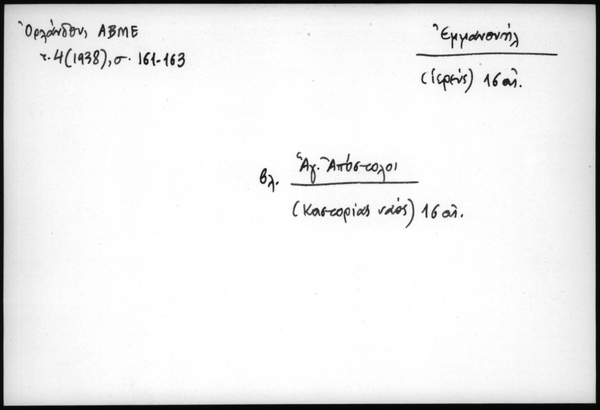 Ὀρλάνδος, ΑΒΜΕ
τ. 4 (1938), σ. 161-163
Ἐμμανουήλ
(ἱερεύς) 16 αἰ.
βλ. Ἁγ. Ἀπόστολοι
(Καστορίας ναός) 16 αἰ.